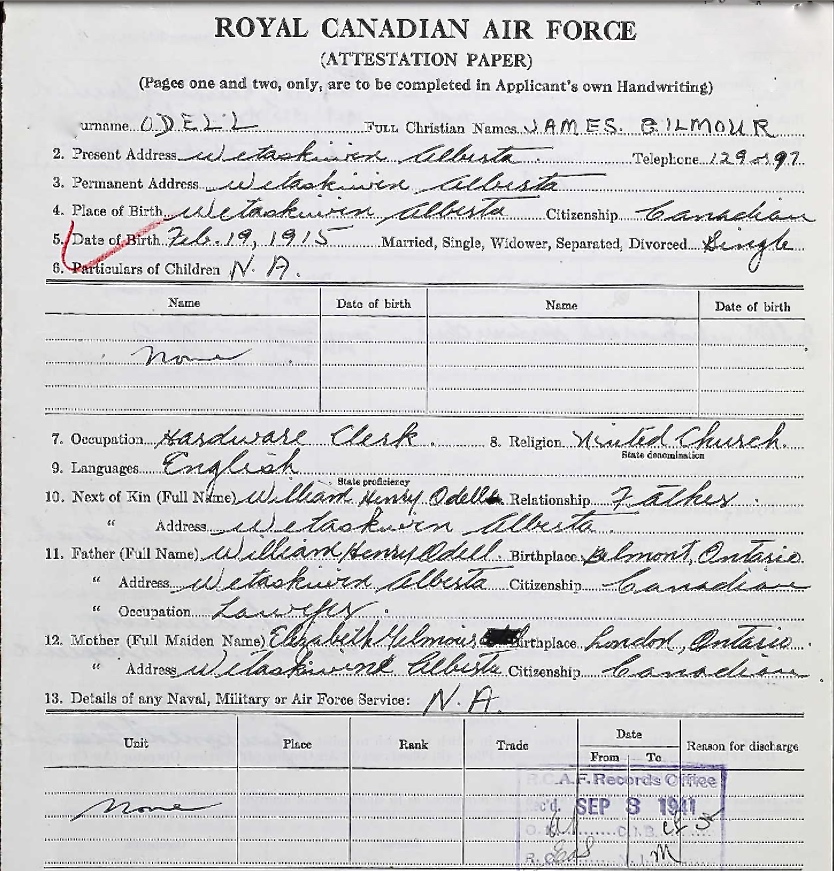 ROYAL CANADIAN AIR FORCE
(ATTESTATION PAPER)
(Pages one and two, only, are to be completed in Applicant's own Handwriting)
urname ODELL FULL Christian Names JAMES. GILMOUR
2. Present Address Wetaskiwin Alberta Telephone 129 or 97
3. Permanent Address Wetaskiwin Alberta
4. Place of Birth Wetaskiwin Alberta Citizenship Canadian
5. Date of Birth Feb. 19, 1915 Married, Single, Widower, Separated, Divorced Single
6. Particulars of Children N. A.
Name Date of birth Name Date of birth
None
7. Occupation Hardware Clerk. 8. Religion United Church.
State denomination
9. Languages English
State proficiency
10. Next of Kin (Full Name) William Henry Odell Relationship Father.
" Address Wetaskiwin Alberta.
11. Father (Full Name) William Henry Odell. Birthplace Belmont, Ontario.
" Address Wetaskiwin Alberta Citizenship Canadian
" Occupation Lawyer.
12. Mother (Full Maiden Name) Elizabeth Gilmour Birthplace London, Ontario.
" Address Wetaskiwin Alberta Citizenship Canadian
13. Details of any Naval, Military or Air Force Service: N.A.
Unit Place Rank Trade Date Reason for discharge
From To
R.C.A.F. Records Office
None
Rec'd. SEP 8 1941